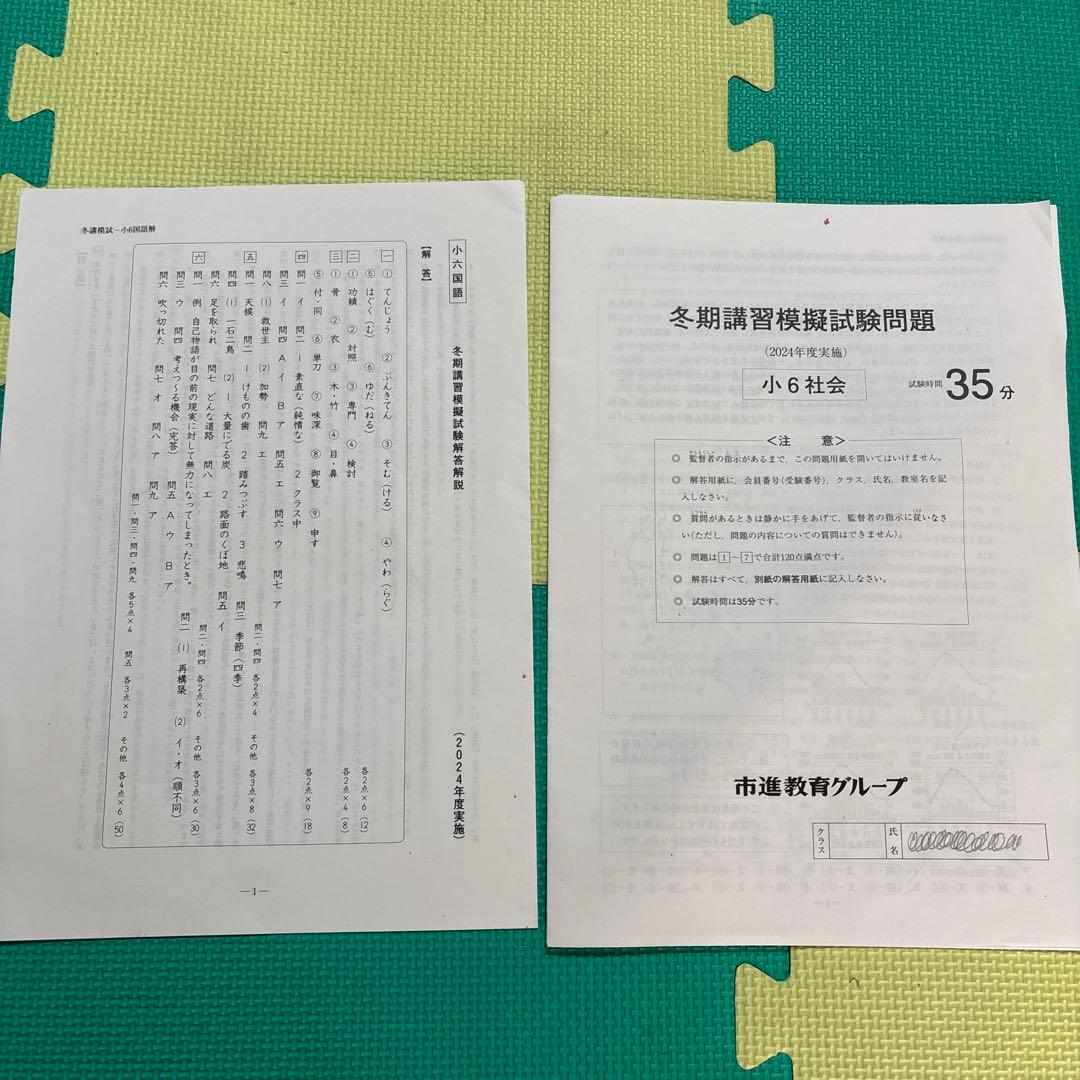 冬講模試－小6国語解
小六国語
冬期講習模擬試験解答解説
(2024年度実施)
【解答】
一 ① てんじょう ② ぶんきてん ③ そむ(ける) ④ やわ(らぐ)
⑤ はぐく(む) ⑥ ゆだ(ねる) 各2点×6 (12)
二 ① 功績 ② 対照 ③ 専門 ④ 検討 各2点×4 (8)
三 ① 骨 ② 衣 ③ 木・竹 ④ 目・鼻
⑤ 付・同 ⑥ 単刀 ⑦ 味深 ⑧ 御覧 ⑨ 申す 各2点×9 (18)
四 問一 イ 問二 1 素直な(純情な) 2 クラス中
問三 イ 問四 A イ B ア 問五 エ 問六 ウ 問七 ア
問八 (1) 救世主 (2) 加勢 問九 エ 問二・問四 各2点×4 その他 各3点×8 (32)
五 問一 天候 問二 1 けものの歯 2 踏みつぶす 3 悲鳴 問三 季節(四季)
問四 (1) 一石二鳥 (2) 1 大量にでる炭 2 路面のくぼ地 問五 イ
問六 足を取られ 問七 どんな道路 問八 エ 問二・問四 各2点×6 その他 各3点×6 (30)
六 問一 例 自己物語が目の前の現実に対して無力になってしまったとき。 問二 (1) 再構築 (2) イ・オ(順不同)
問三 ウ 問四 考えつ～る機会(完答) 問五 A ウ B ア
問六 吹っ切れた 問七 オ 問八 ア 問九 ア
問一・問三・問四・問九 各5点×4 問五 各3点×2 その他 各4点×6 (50)
—1—
冬期講習模擬試験問題
(2024年度実施)
小6社会
試験時間 35分
＜注 意＞
◎ 監督者の指示があるまで、この問題用紙を開いてはいけません。
◎ 解答用紙に、会員番号(受験番号)、クラス、氏名、教室名を記
入しなさい。
◎ 質問があるときは静かに手をあげて、監督者の指示に従いなさ
い(ただし、問題の内容についての質問はできません)。
◎ 問題は1～7で合計120点満点です。
◎ 解答はすべて、別紙の解答用紙に記入しなさい。
◎ 試験時間は35分です。
市進教育グループ
クラス
氏名